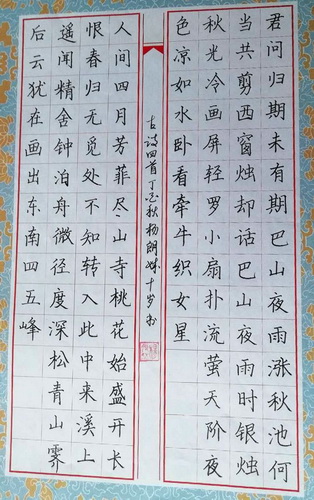 君问归期未有期巴山夜雨涨秋池何
当共剪西窗烛却话巴山夜雨时银烛
秋光冷画屏轻罗小扇扑流萤天阶夜
色凉如水卧看牵牛织女星
古诗四首丁酉秋杨朗妹十岁书
人间四月芳菲尽山寺桃花始盛开长
恨春归无觅处不知转入此中来溪上
遥闻精舍钟泊舟微径度深松青山霁
后云犹在画出东南四五峰